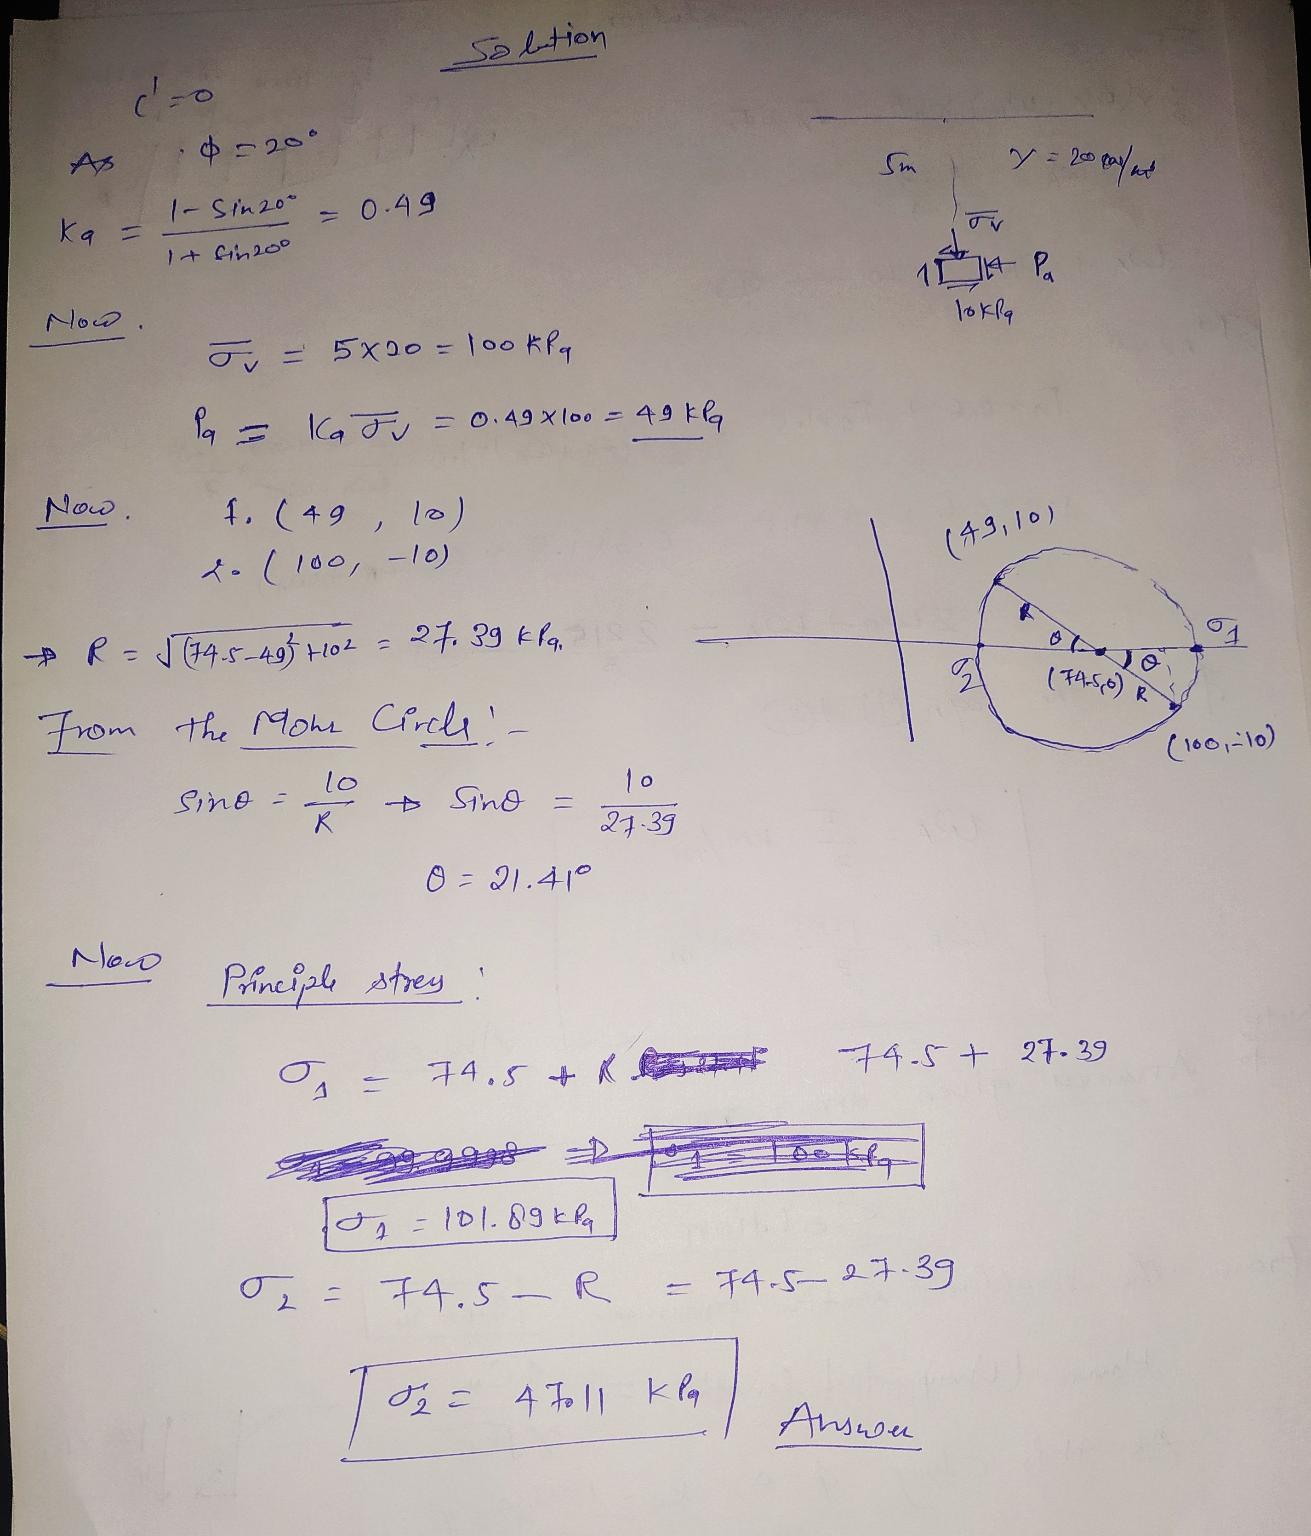 Solution
c' = 0
As φ = 20°
Ka = (1 - Sin20°)/(1 + Sin20°) = 0.49
5m
γ = 20
σ̅v
1
Pa
10kPa
Now.
σ̅v = 5×20 = 100 KPa
Pa = Ka σ̅v = 0.49×100 = 49 kPa
Now. 1. (49, 10)
2. (100, -10)
→ R = √((74.5-49)² + 10²) = 27.39 kPa.
(49,10)
R
θ
σ1
σ2
(74.5,0)
θ
R
(100,-10)
From the Mohr Circle:-
Sinθ = 10/R → Sinθ = 10/27.39
θ = 21.41°
Now Principle stress:
σ1 = 74.5 + R 74.5 + 27.39
σ1 = 101.89 kPa
σ2 = 74.5 - R = 74.5 - 27.39
σ2 = 47.11 kPa
Answer